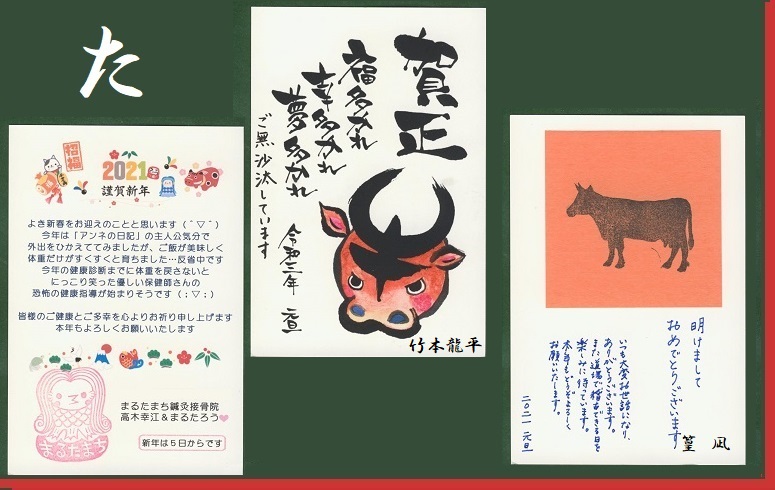 た
招福
2021
謹賀新年
よき新春をお迎えのことと思います（＾▽＾）
今年は「アンネの日記」の主人公気分で
外出をひかえててみましたが、ご飯が美味しく
体重だけがすくすくと育ちました…反省中です
今年の健康診断までに体重を戻さないと
にっこり笑った優しい保健師さんの
恐怖の健康指導が始まりそうです（；▽；）
皆様のご健康とご多幸を心よりお祈り申し上げます
本年もよろしくお願いいたします
まるたまち
まるたまち鍼灸接骨院
高木幸江＆まるたろう
新年は５日からです
賀正
福多かれ
幸多かれ
夢多かれ
ご無沙汰しています
令和三年 元旦
竹本龍平
明けまして
おめでとうございます
いつも大変お世話になり、
ありがとうございます。
また道場で稽古できる日を
楽しみに待っています。
本年もどうぞよろしく
お願いいたします。
二〇二一 元旦
篁 凪